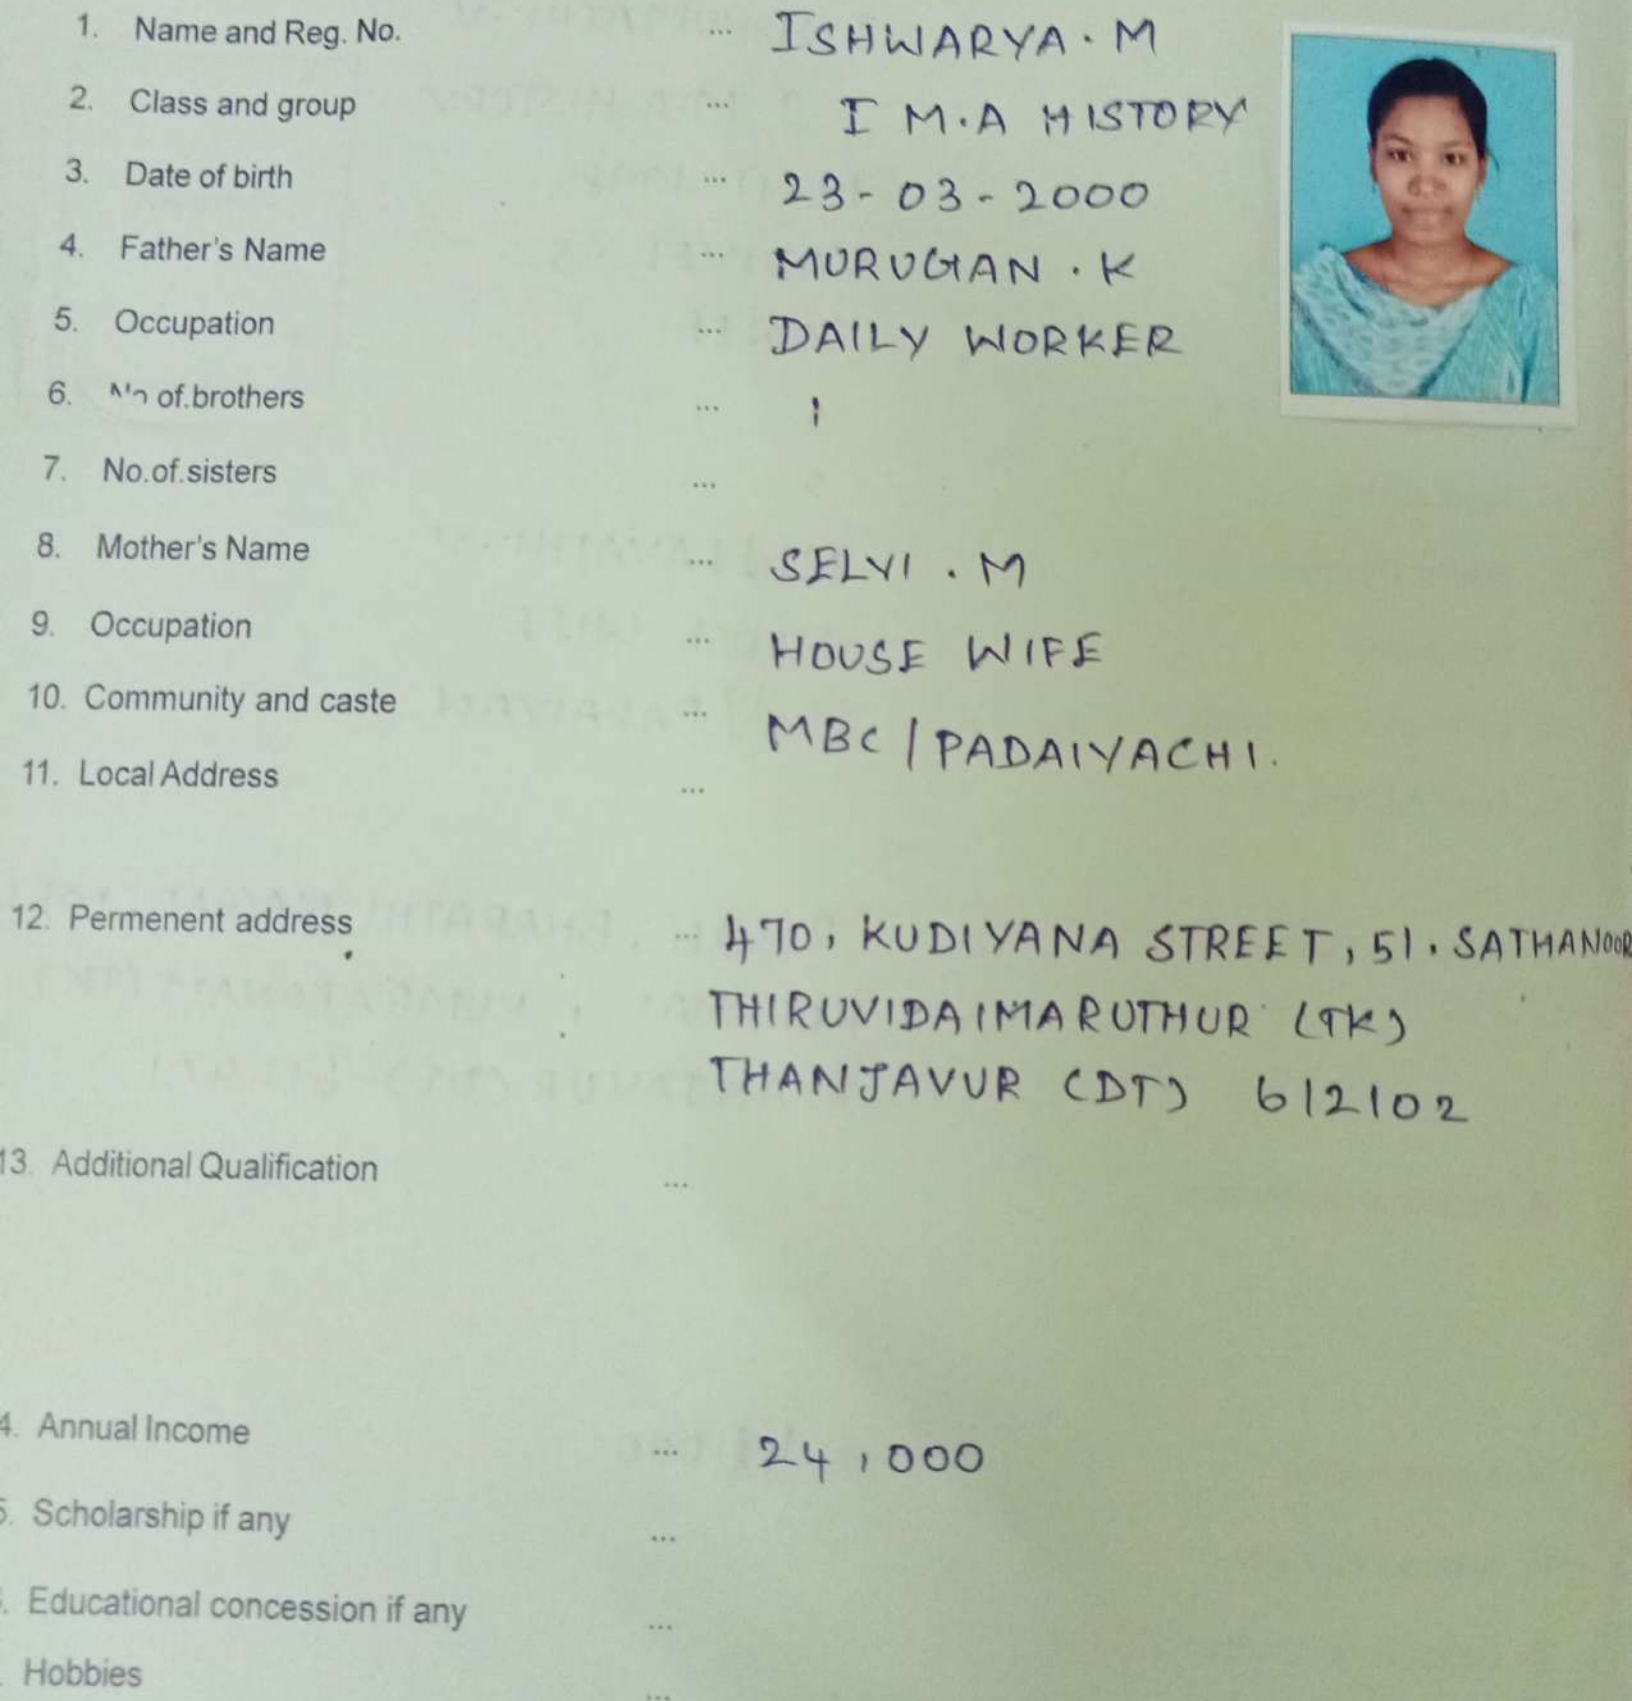 1. Name and Reg. No. ... ISHWARYA . M
2. Class and group ... I M.A HISTORY
3. Date of birth ... 23-03-2000
4. Father's Name ... MURUGAN . K
5. Occupation ... DAILY WORKER
6. No of.brothers ... 1
7. No.of.sisters ...
8. Mother's Name ... SELVI . M
9. Occupation ... HOUSE WIFE
10. Community and caste ... MBC / PADAIYACHI.
11. Local Address ...
12. Permenent address ... 470, KUDIYANA STREET, 51, SATHANOOR
THIRUVIDAIMARUTHUR (TK)
THANJAVUR (DT) 612102
13. Additional Qualification ...
4. Annual Income ... 24,000
5. Scholarship if any ...
. Educational concession if any ...
. Hobbies ...